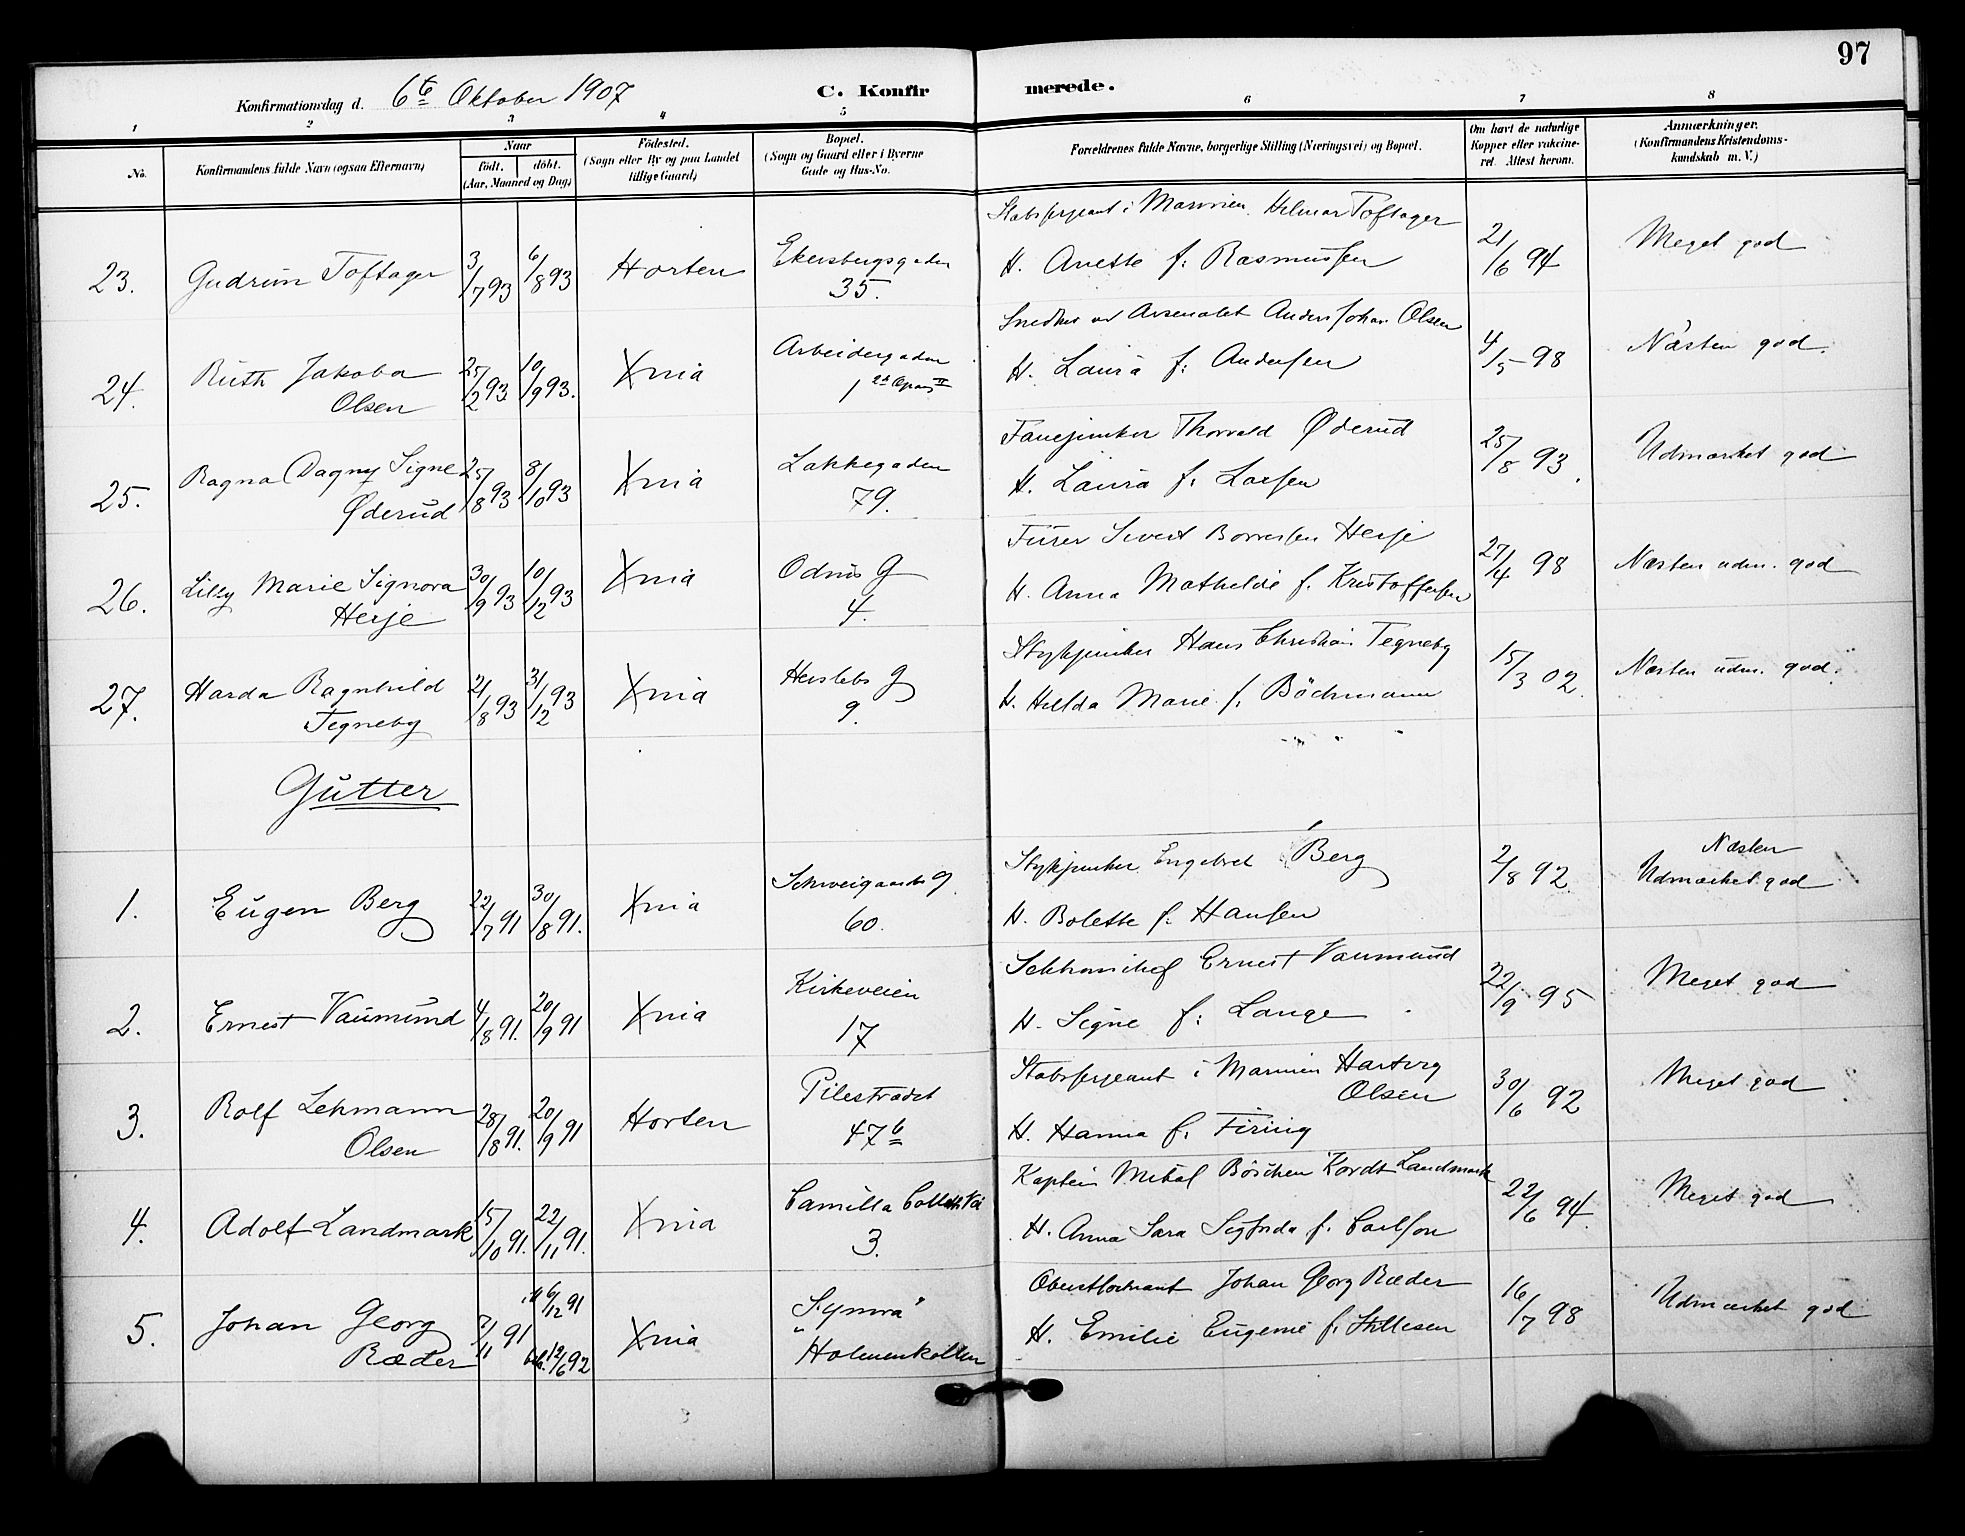 97
Konfirmationsdag d. 6te Oktober 1907 C. Konfir merede.
1 2 3 4 5 6 7 8
No. Konfirmandens fulde Navn (ogsaa Efternavn) Naar født. døbt. (Aar, Maaned og Dag) Fødested. (Sogn eller By og paa Landet tillige Gaard) Bopæl. (Sogn og Gaard eller i Byerne Gade og Hus-No. Forældrenes fulde Navne, borgerlige Stilling (Næringsvei) og Bopæl. Om havt de naturlige Kopper eller vakcineret. Attest herom. Anmærkninger. (Konfirmandens Kristendomskundskab m. V.)
Stabssergeant i Marinen Hilmar Toftager
23. Gudrun Toftager 3/7 93 6/8 93 Horten Ekersbergsgaden 35. H. Anette f: Rasmussen 21/6 94 Meget god
Snedker ved Arsenalet Anders Johan Olsen
24. Ruth Jakoba Olsen 25/2 93 10/9 93. Xnia Arbeidergaden 1 II H. Laura f: Andersen 4/5 98 Næsten god.
Fanejunker Thorvald Øderud
25. Ragna Dagny Signe Øderud 25/8 93 8/10 93 Xnia Lakkegaden 79. H. Laura f. Larsen 25/8 93. Udmærket god
Furer Sivert Borresen Herje
26. Lilly Marie Signora Herje 30/9 93 10/12 93 Xnia Odins G 4. H. Anna Mathilde f. Kristoffersen 27/4 98 Næsten udm. god
Stykjunker Hans Christian Tegneby
27. Harda Ragnhild Tegneby 21/8 93 31/12 93 Xnia Herslebs G 9. H. Hilda Marie f. Böchmann 15/3 02. Næsten udm. god.
Gutter
Stykjunker Engebret Berg
1. Eugen Berg 22/7 91 30/8 91. Xnia Schweigaards G. 60. H. Bolette f. Hansen 2/8 92. Næsten Udmærket god
Sektionschef Ernest Vaumund
2. Ernest Vaumund 4/8 91. 20/9 91 Xnia Kirkeveien 17 H. Signe f: Lange 22/9 95 Meget god
Stabssergeant i Marinen Hartvig Olsen
3. Rolf Lehmann Olsen 28/8 91. 20/9 91 Horten Pilestrædet 47b H. Hanna f. Firing 30/6 92 Meget god
Kaptein Mikal Böschen Kordt Landmark
4. Adolf Landmark 15/10 91. 22/11 91. Xnia Camilla Colletts Vei 3. H. Anna Sara Sigfrida f. Carlson 22/6 94. Meget god
Oberstløitnant Johan Georg Ræder
5. Johan Georg Ræder 7/11 91 6/12 91 12/6 92 Xnia "Symra" Holmenkollen H. Emilie Eugenie f. Stillesen 16/7 98 Udmærket god